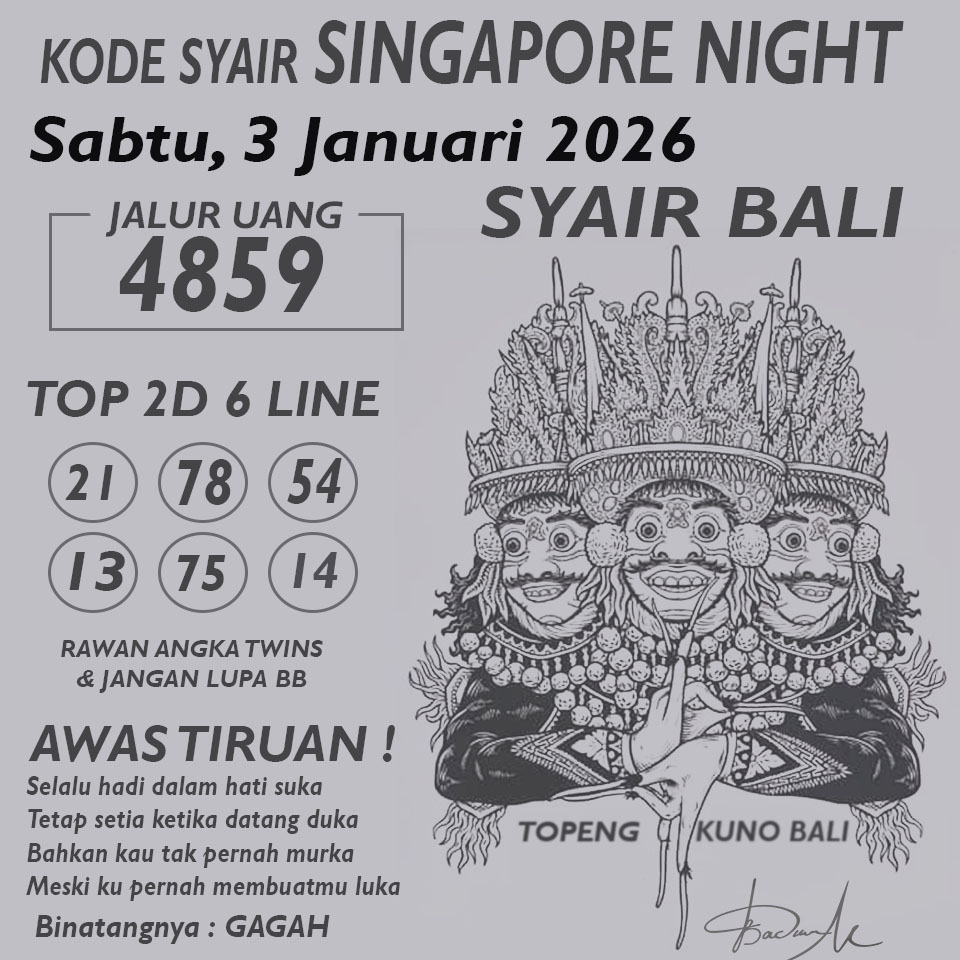 KODE SYAIR SINGAPORE NIGHT
Sabtu, 3 Januari 2026
SYAIR BALI
JALUR UANG
4859
TOP 2D 6 LINE
21 78 54
13 75 14
RAWAN ANGKA TWINS
& JANGAN LUPA BB
AWAS TIRUAN !
Selalu hadi dalam hati suka
Tetap setia ketika datang duka
Bahkan kau tak pernah murka
Meski ku pernah membuatmu luka
Binatangnya : GAGAH
TOPENG KUNO BALI